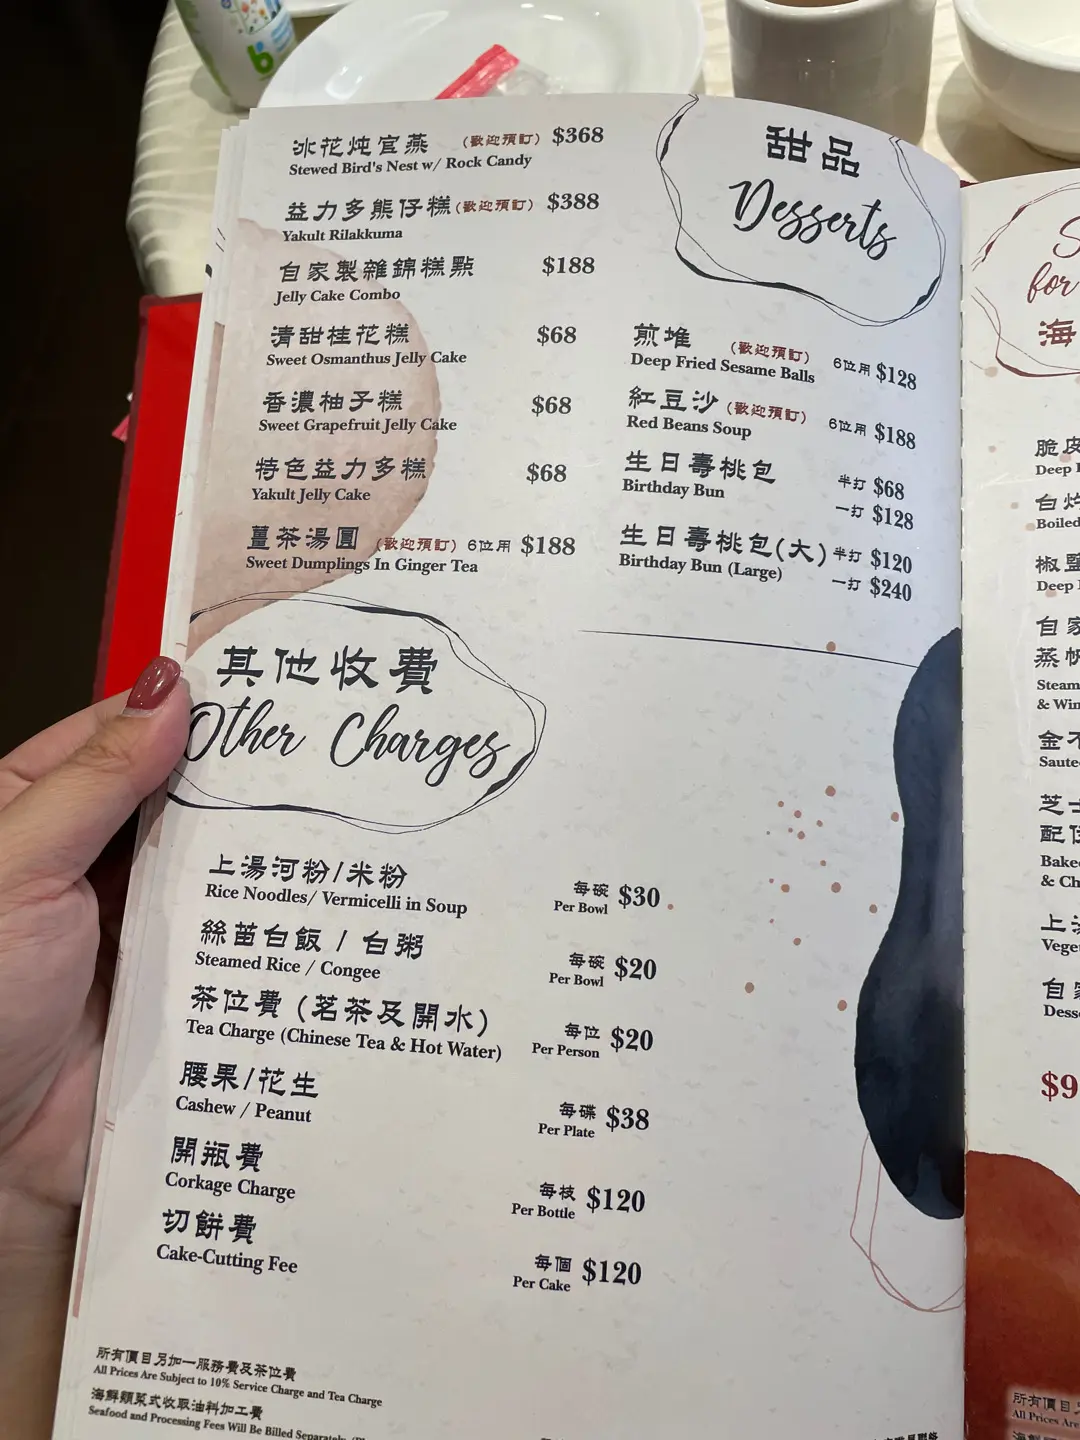 甜品
Desserts
冰花炖官燕 (歡迎預訂) $368
Stewed Bird's Nest w/ Rock Candy
益力多熊仔糕 (歡迎預訂) $388
Yakult Rilakkuma
自家製雜錦糕點 $188
Jelly Cake Combo
清甜桂花糕 $68
Sweet Osmanthus Jelly Cake
香濃柚子糕 $68
Sweet Grapefruit Jelly Cake
特色益力多糕 $68
Yakult Jelly Cake
薑茶湯圓 (歡迎預訂) 6位用 $188
Sweet Dumplings In Ginger Tea
煎堆 (歡迎預訂) 6位用 $128
Deep Fried Sesame Balls
紅豆沙 (歡迎預訂) 6位用 $188
Red Beans Soup
生日壽桃包 半打 $68
Birthday Bun 一打 $128
生日壽桃包(大) 半打 $120
Birthday Bun (Large) 一打 $240
其他收費
Other Charges
上湯河粉/米粉 每碗 $30
Rice Noodles/ Vermicelli in Soup Per Bowl
絲苗白飯 / 白粥 每碗 $20
Steamed Rice / Congee Per Bowl
茶位費 (茗茶及開水) 每位 $20
Tea Charge (Chinese Tea & Hot Water) Per Person
腰果/花生 每碟 $38
Cashew / Peanut Per Plate
開瓶費 每枝 $120
Corkage Charge Per Bottle
切餅費 每個 $120
Cake-Cutting Fee Per Cake
所有價目另加一服務費及茶位費
All Prices Are Subject to 10% Service Charge and Tea Charge
海鮮類菜式收取油料加工費
Seafood and Processing Fees Will Be Billed Separately
for
海
脆皮
Deep
白灼
Boiled
椒鹽
Deep
自家
蒸
Steam
& Win
金
Saute
芝士
配
Bake
& Ch
上湯
Vege
自家
Dess
$9
所有價目
All Prices Are